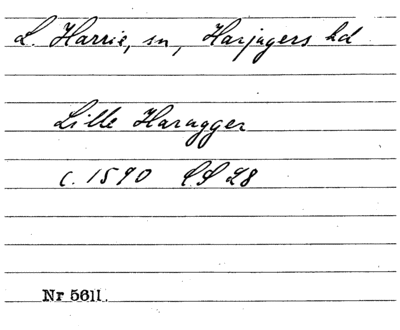 L. Harrie, sn, Harjagers hd
Lille Haragger
c. 1590 LS 28
Nr 5611.